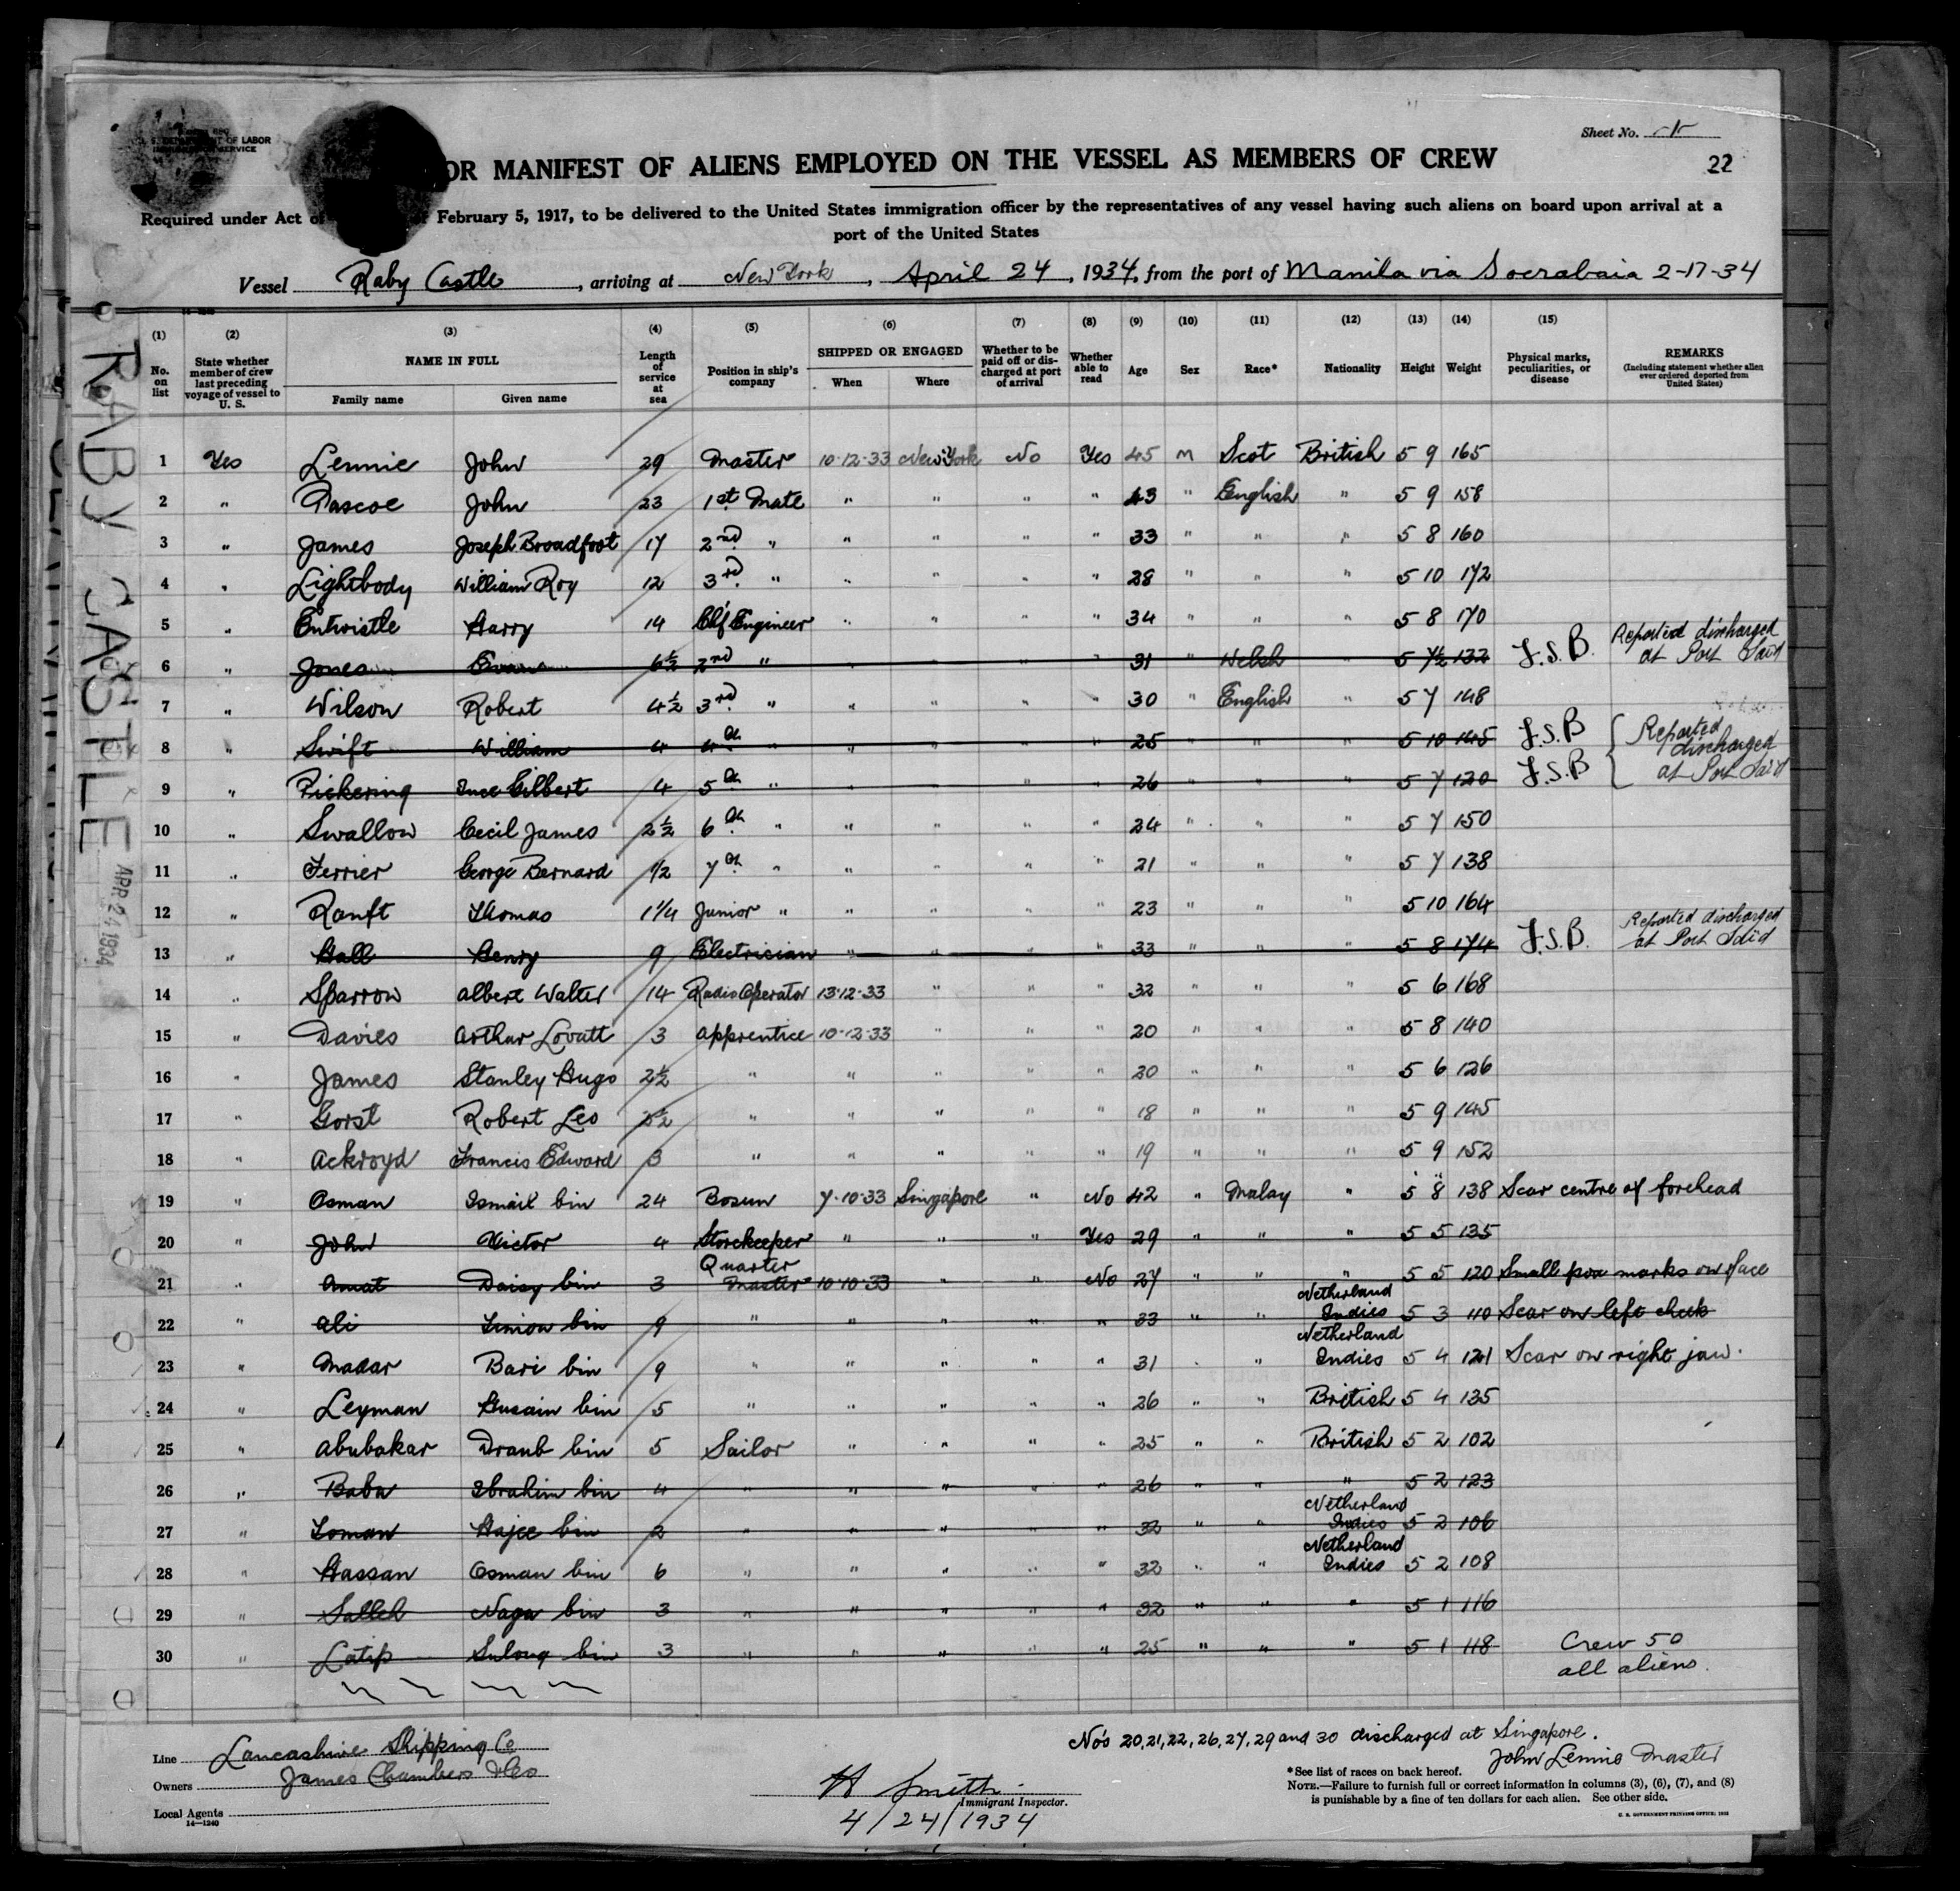 U. S. DEPARTMENT OF LABOR
IMMIGRATION SERVICE
Sheet No. -1-
22
OR MANIFEST OF ALIENS EMPLOYED ON THE VESSEL AS MEMBERS OF CREW
Required under Act of February 5, 1917, to be delivered to the United States immigration officer by the representatives of any vessel having such aliens on board upon arrival at a
port of the United States
Vessel Raby Castle, arriving at New York, April 24, 1934, from the port of Manila via Socrabaia 2-17-34
RABY CASTLE APR 24 1934
(1) (2) (3) (4) (5) (6) (7) (8) (9) (10) (11) (12) (13) (14) (15)
No. on list
State whether member of crew last preceding voyage of vessel to U. S.
NAME IN FULL
Family name Given name
Length of service at sea
Position in ship's company
SHIPPED OR ENGAGED
When Where
Whether to be paid off or discharged at port of arrival
Whether able to read
Age Sex Race* Nationality Height Weight
Physical marks, peculiarities, or disease
REMARKS
(Including statement whether alien ever ordered deported from United States)
1 Yes Lennie John 29 Master 10-12-33 New York No Yes 45 M Scot British 5 9 165
2 " Pascoe John 23 1st Mate " " " " 43 " English " 5 9 158
3 " James Joseph Broadfoot 17 2nd " " " " " 33 " " " 5 8 160
4 " Lightbody William Roy 12 3rd " " " " " 28 " " " 5 10 172
5 " Entwistle Harry 14 Chf Engineer " " " " 34 " " " 5 8 170
6 " Jones Evan 6½ 2nd " " " " " 31 " Welsh " 5 7½ 132 F.S.B. Reported discharged at Port Said
7 " Wilson Robert 4½ 3rd " " " " " 30 " English " 5 7 148
8 " Swift William 4 4th " " " " " 25 " " " 5 10 145 F.S.B Reported discharged at Port Said
9 " Pickering Ince Gilbert 4 5th " " " " " 26 " " " 5 7 120 F.S.B
10 " Swallow Cecil James 2½ 6th " " " " " 24 " " " 5 7 150
11 " Ferrier George Bernard 1/2 7th " " " " " 21 " " " 5 7 138
12 " Ranft Thomas 1¼ Junior " " " " " 23 " " " 5 10 164
13 " Hall Henry 9 Electrician " " " " 33 " " " 5 8 174 F.S.B. Reported discharged at Port Said
14 " Sparrow Albert Walter 14 Radio Operator 13-12-33 " " " 32 " " " 5 6 168
15 " Davies Arthur Lovatt 3 Apprentice 10-12-33 " " " 20 " " " 5 8 140
16 " James Stanley Hugo 2½ " " " " " 20 " " " 5 6 126
17 " Gorst Robert Leo 2½ " " " " " 18 " " " 5 9 145
18 " Ackroyd Francis Edward 3 " " " " " 19 " " " 5 9 152
19 " Osman Ismail bin 24 Bosun 7-10-33 Singapore " No 42 " Malay " 5 8 138 Scar centre of forehead
20 " John Victor 4 Storekeeper " " " Yes 29 " " " 5 5 135
21 " Amat Daisy bin 3 Quarter Master 10-10-33 " " No 27 " " " 5 5 120 Small pox marks on face
22 " Ali Simon bin 9 " " " " " 33 " " Netherland Indies 5 3 110 Scar on left cheek
23 " Madar Bari bin 9 " " " " " 31 " " Netherland Indies 5 4 121 Scar on right jaw.
24 " Leyman Husain bin 5 " " " " " 26 " " British 5 4 135
25 " Abubakar Draub bin 5 Sailor " " " " 25 " " British 5 2 102
26 " Baba Ibrahim bin 4 " " " " " 26 " " " 5 2 123
27 " Loman Hajee bin 2 " " " " " 32 " " Netherland Indies 5 2 106
28 " Hassan Osman bin 6 " " " " " 32 " " Netherland Indies 5 2 108
29 " Salleh Naga bin 3 " " " " " 32 " " " 5 1 116
30 " Latip Sulong bin 3 " " " " " 25 " " " 5 1 118
Crew 50
all aliens.
Line Lancashire Shipping Co
Owners James Chambers & Co
Local Agents
14—1240
H Smith
Immigrant Inspector.
4/24/1934
No's 20, 21, 22, 26, 27, 29 and 30 discharged at Singapore.
John Lennie Master
*See list of races on back hereof.
NOTE.—Failure to furnish full or correct information in columns (3), (6), (7), and (8)
is punishable by a fine of ten dollars for each alien. See other side.
U. S. GOVERNMENT PRINTING OFFICE: 1932